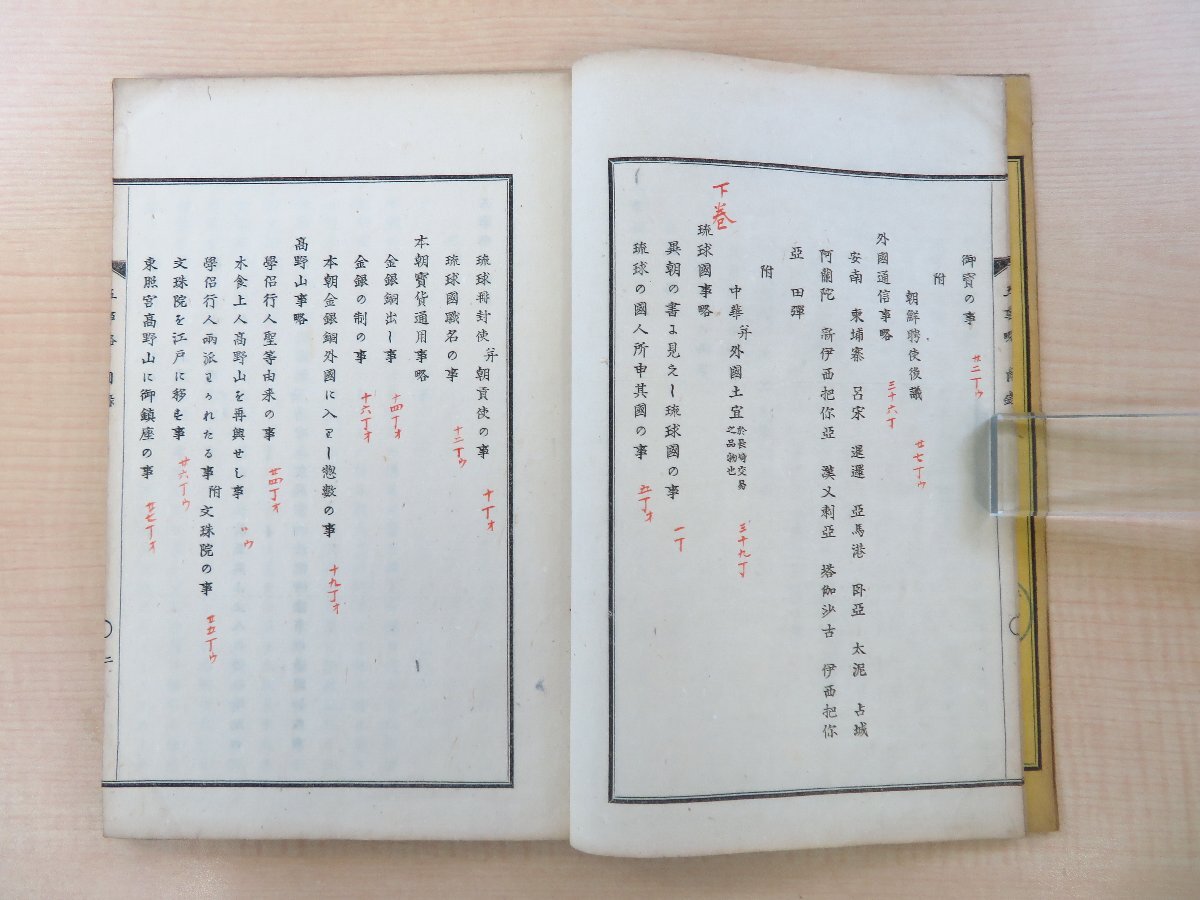 御寳の事 廿二丁ウ
附
朝鮮聘使後議 廿七丁ウ
外國通信事略 三十六丁
安南 柬埔寨 呂宋 暹邏 亞馬港 臥亞 太泥 占城
阿蘭陀 新伊西把你亞 漢乂剌亞 塔伽沙古 伊西把你
亞 田彈
附
中華并外國土宜 於長崎交易之品物也 三十九丁
下巻
琉球國事略
異朝の書に見えし琉球國の事 一丁
琉球の國人所申其國の事 五丁オ
琉球册封使并朝貢使の事 十丁オ
琉球國職名の事 十二丁ウ
本朝寳貨通用事略
金銀銅出し事 十四丁オ
金銀の制の事 十六丁オ
本朝金銀銅外國に入りし惣數の事 十九丁オ
高野山事略
學侶行人聖等由来の事 廿四丁オ
木食上人高野山を再興せし事 〃ウ
學侶行人両派わかれたる事附文珠院の事 廿五丁ウ
文珠院を江戸に移す事 廿六丁ウ
東照宮高野山に御鎮座の事 廿七丁オ
二